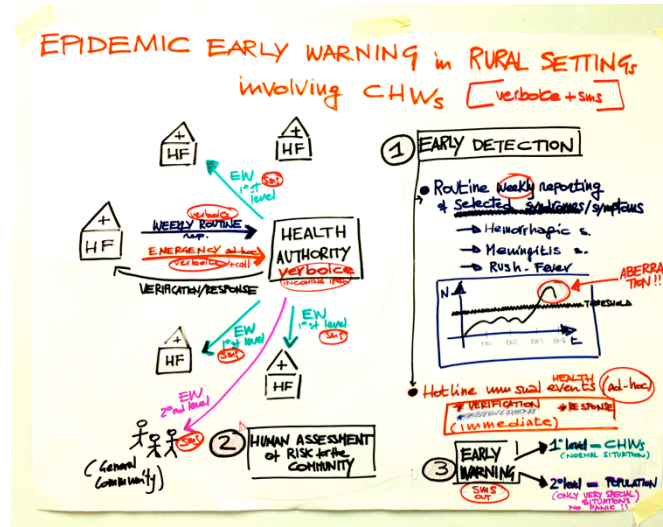 EPIDEMIC EARLY WARNING in RURAL SETTINGs
involving CHWs [verboice + sms]
+
HF
+
HF
+
HF
EW
1st level
sms
verboice
WEEKLY ROUTINE
rep.
EMERGENCY ad-hoc
verboice/+call
VERIFICATION/RESPONSE
HEALTH
AUTHORITY
verboice
INCOMING INFO
EW
1st level
sms
+
HF
EW
1st level
sms
+
HF
EW
2nd level
sms
(General
Community)
2 HUMAN ASSESSMENT
of RISK for the
COMMUNITY
1 EARLY DETECTION
Routine weekly reporting
of selected syndromes/symptoms
Hemorrhagic s.
Meningitis s.
Rush-Fever
N
ABERRA
TION!!
THRESHOLD
t
Hotline unusual HEALTH events (ad-hoc)
* VERIFICATION * RESPONSE
(immediate)
3 EARLY
WARNING
sms
OUT
1° level = CHWs
(NORMAL SITUATION)
2° level = POPULATION
(ONLY VERY SPECIAL)
SITUATIONS
NO PANIC !!